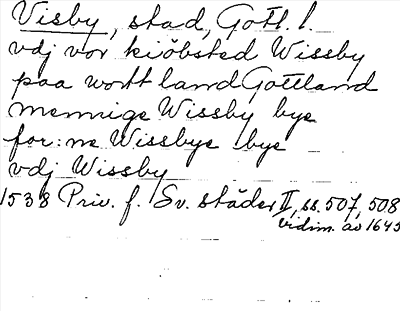 Visby, stad, Gotl. l.
vdj vor kiöbsted Wissby
paa wortt land Gottland
mennige Wissby bye
for:ne Wissbye bye
vdj Wissby
1538 Priv. f. Sv. städer II, ss. 507, 508
vidim. av 1645